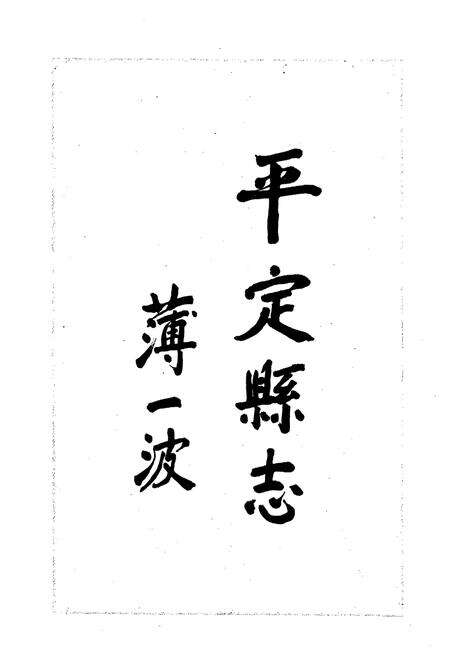 平定縣志
薄一波